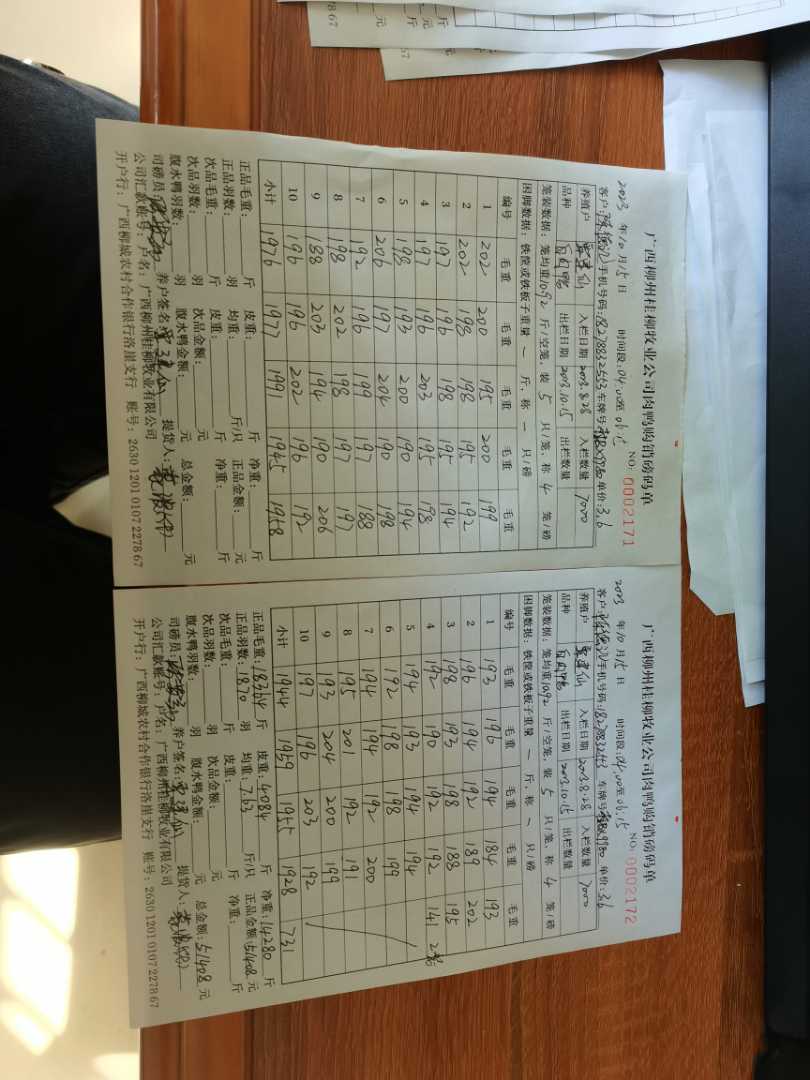 广西柳州桂柳牧业公司肉鸭购销磅码单
NO: 0002171
2023 年 10 月 15 日 时间段: 04:00至 06:15
客户: 手机号码: 车牌号 单价: 3.6
养殖户 入栏日期 2023.8.28 入栏数量 7000
品种 出栏日期 2023.10.15 出栏数量
笼装数据: 笼均重10.92 斤/空笼, 装 5 只/笼, 称 4 笼/磅
困脚数据: 铁筐或铁板子重量 一 斤, 称 一 只/磅
编号 毛重 毛重 毛重 毛重 毛重
1 202 200 195 200 199
2 202 198 198 195 192
3 197 196 198 195 194
4 197 196 203 195 198
5 198 193 200 190 194
6 206 197 204 190 198
7 192 196 199 197 188
8 198 202 198 197 197
9 188 203 194 190 206
10 196 196 202 196 192
小计 1976 1977 1991 1945 1958
正品毛重: 斤 皮重: 斤 净重: 斤
正品羽数: 羽 均重: 斤/只 正品金额: 元
次品毛重: 斤 皮重: 斤 净重: 斤
次品羽数: 羽 次品金额: 元
腹水鸭羽数: 羽 腹水鸭金额: 元 总金额: 元
司磅员: 养户签名: 提货人:
公司汇款账号: 户名: 广西柳州桂柳牧业有限公司
开户行: 广西柳城农村合作银行洛崖支行 账号: 2630 1201 0107 2278 67
广西柳州桂柳牧业公司肉鸭购销磅码单
NO: 0002172
2023 年 10 月 15 日 时间段: 04:00至 06:15
客户: 手机号码: 车牌号 单价: 3.6
养殖户 入栏日期 2023.8.28 入栏数量 7000
品种 出栏日期 2023.10.15 出栏数量
笼装数据: 笼均重10.92 斤/空笼, 装 5 只/笼, 称 4 笼/磅
困脚数据: 铁筐或铁板子重量 一 斤, 称 一 只/磅
编号 毛重 毛重 毛重 毛重 毛重
1 193 196 194 184 193
2 196 194 192 189 202
3 198 193 198 188 195
4 192 190 192 192 141
5 194 193 194 194
6 192 198 198 199
7 194 194 192 200
8 195 201 192 191
9 193 204 200 199
10 197 196 203 192
小计 1944 1959 1955 1928 731
正品毛重: 18364 斤 皮重: 4084 斤 净重: 14280 斤
正品羽数: 1870 羽 均重: 7.63 斤/只 正品金额: 51408 元
次品毛重: 斤 皮重: 斤 净重: 斤
次品羽数: 羽 次品金额: 元
腹水鸭羽数: 羽 腹水鸭金额: 元 总金额: 51408 元
司磅员: 养户签名: 提货人:
公司汇款账号: 户名: 广西柳州桂柳牧业有限公司
开户行: 广西柳城农村合作银行洛崖支行 账号: 2630 1201 0107 2278 67